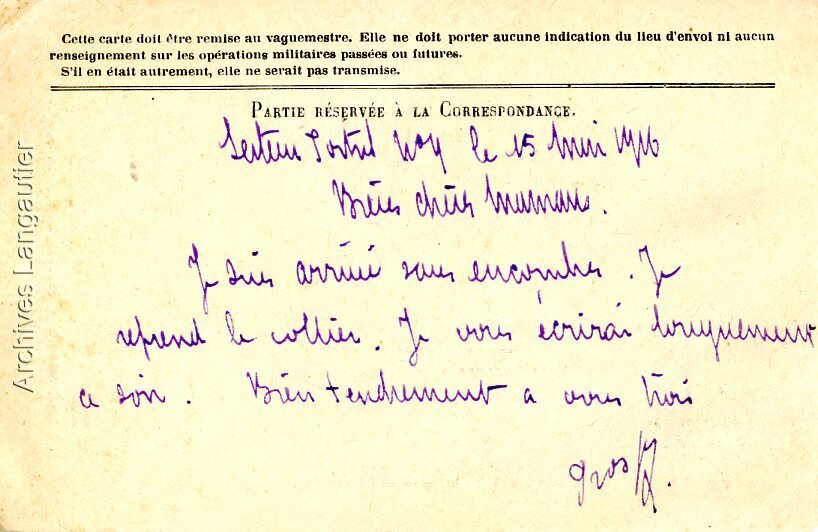 Cette carte doit être remise au vaguemestre. Elle ne doit porter aucune indication du lieu d'envoi ni aucun
renseignement sur les opérations militaires passées ou futures.
S'il en était autrement, elle ne serait pas transmise.
PARTIE RÉSERVÉE À LA CORRESPONDANCE.
Secteur Postal le 15 Mai 1916
chères Mamans.
Je suis arrivé sans encombre. Je
reprend le collier. Je vous écrirai longuement
ce soir. Bien tendrement a vous trois
Archives Langautier